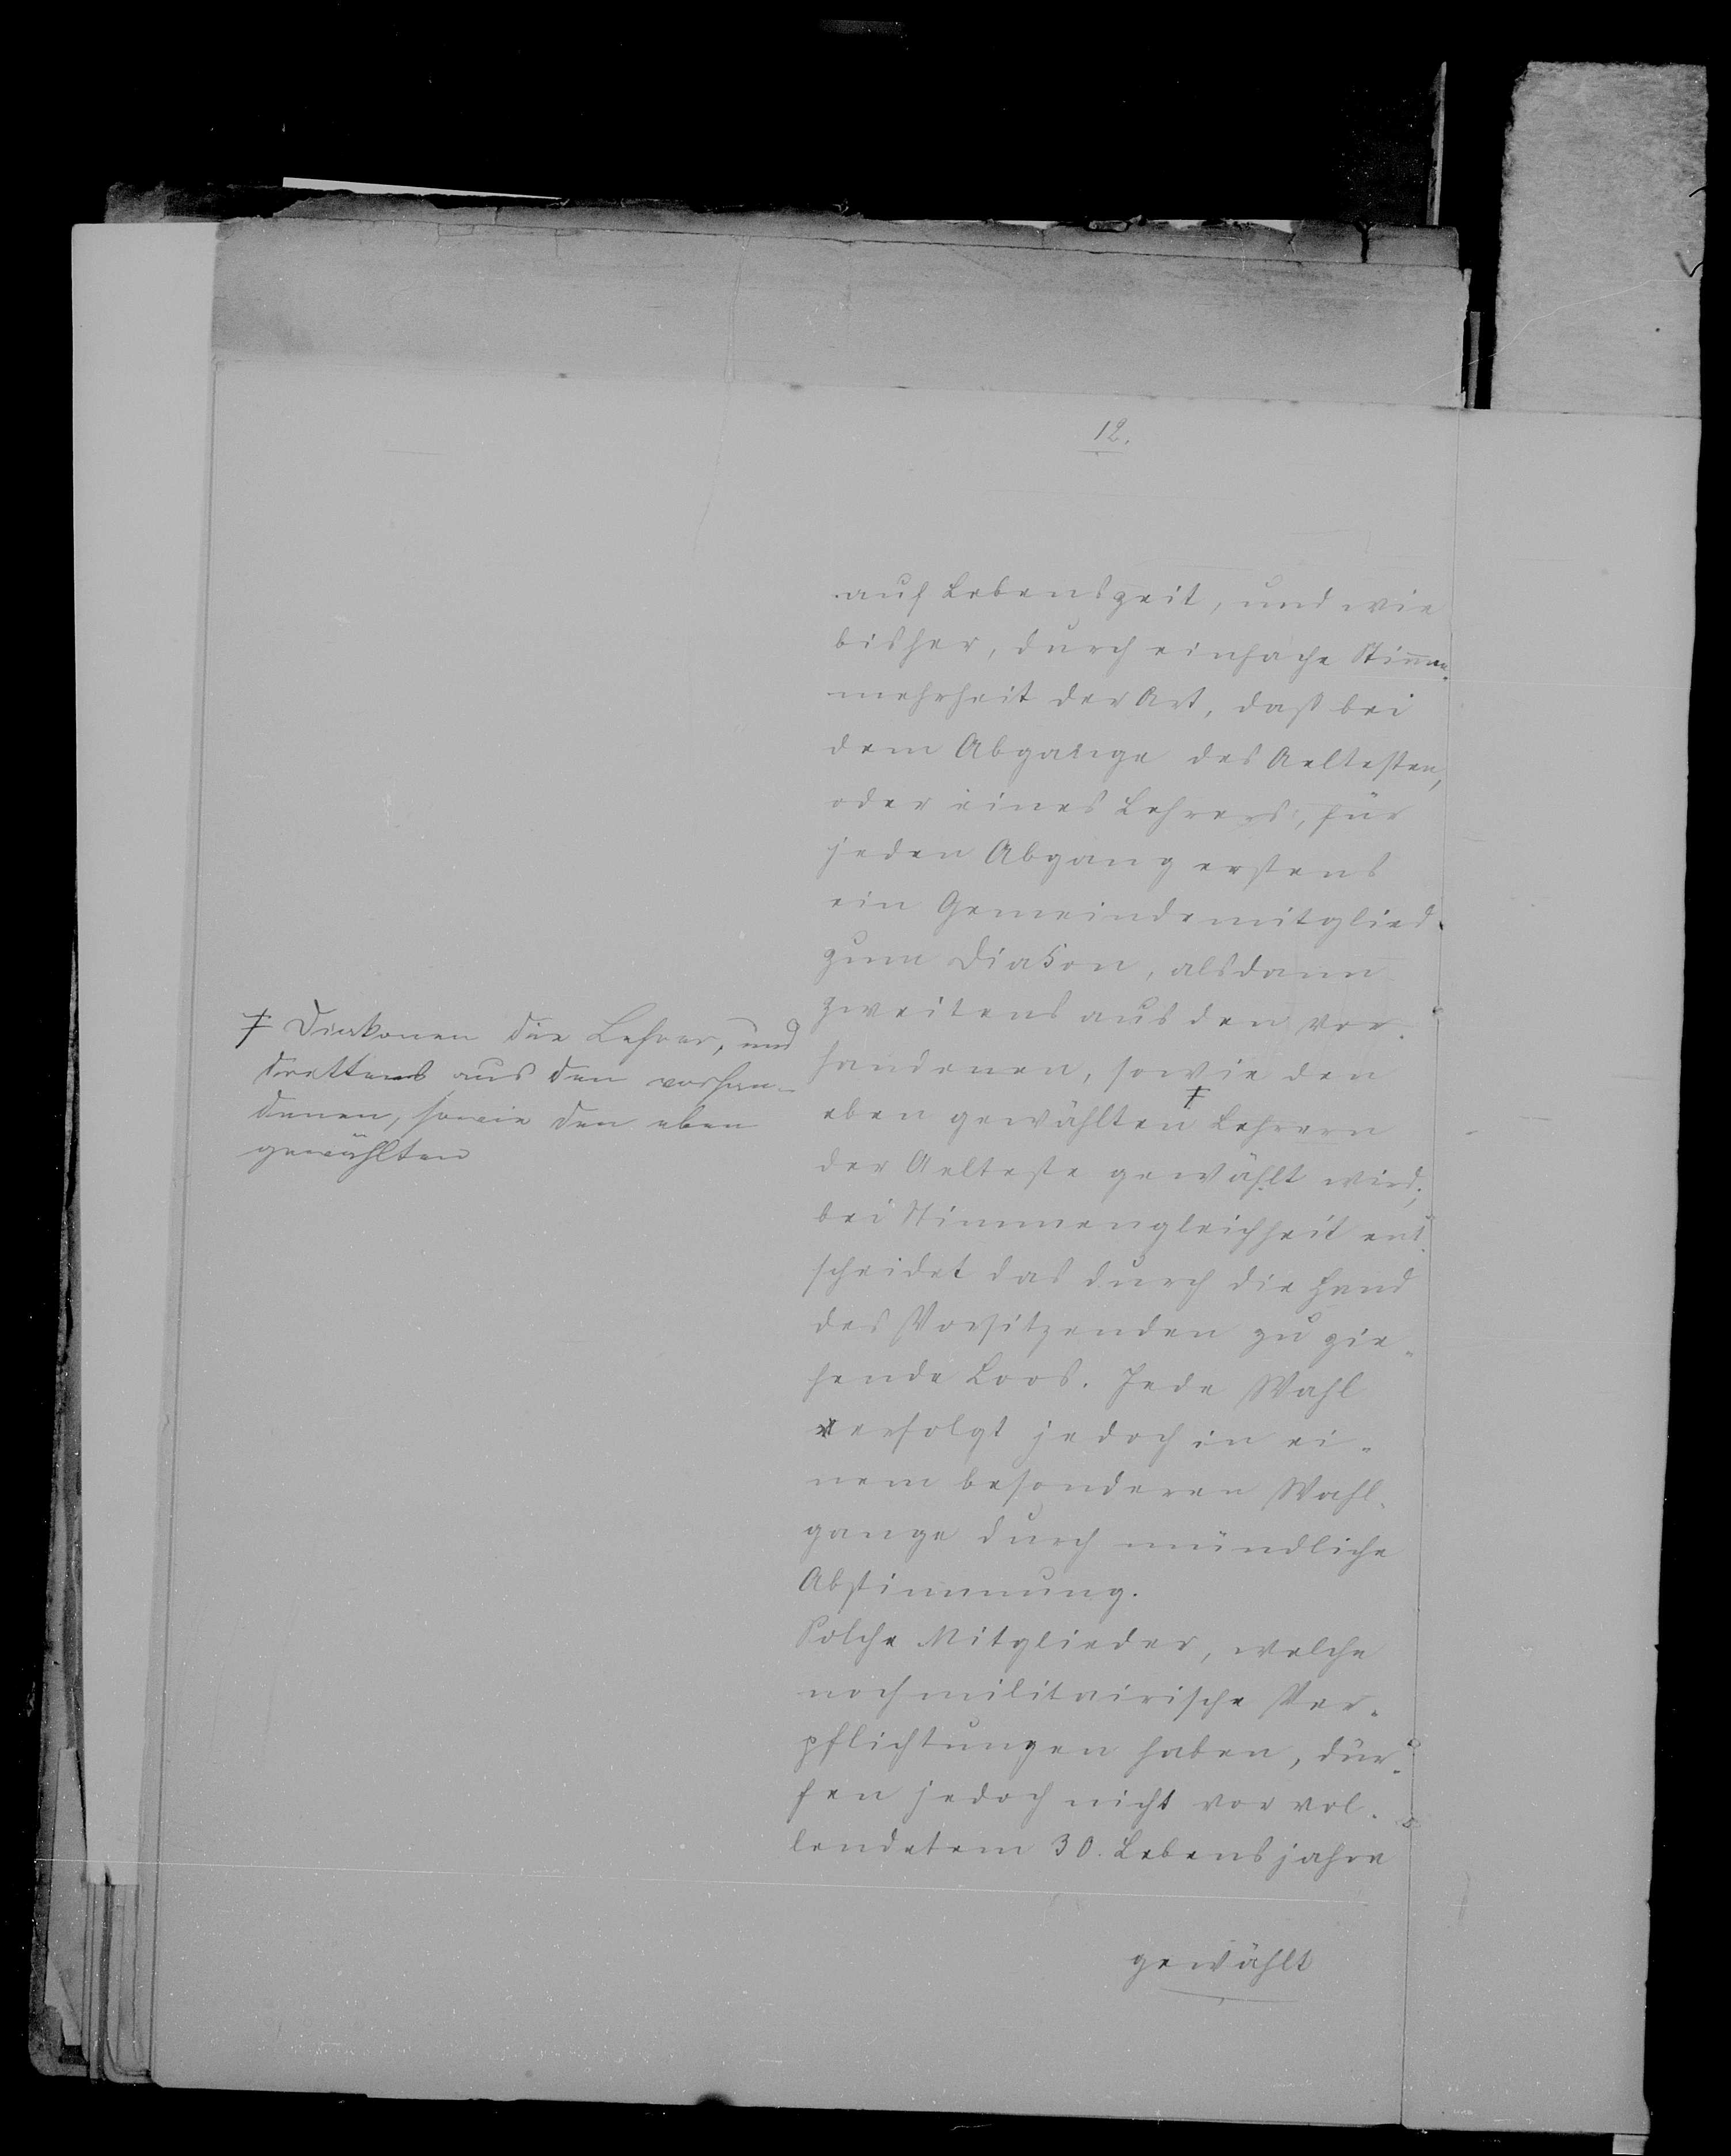 12.
auf Lebenszeit, und wie
bisher, durch einfache Stimmen-
mehrheit der Art, daß bei
dem Abgange des Aeltesten,
oder eines Lehrers, für
jeden Abgang erstens
ein Gemeindemitglied
zum Diakon, alsdann
zweitens aus den vor-
handenen, sowie den
eben gewählten ‡ Lehrern
der Aelteste gewählt wird;
bei Stimmengleichheit ent-
scheidet das durch die Hand
des Vorsitzenden zu zie-
hende Loos. Jede Wahl
erfolgt jedoch in ei-
nem besonderen Wahl-
gange durch mündliche
Abstimmung.
Solche Mitglieder, welche
noch militairische Ver-
pflichtungen haben, dür-
fen jedoch nicht vor vol-
lendetem 30. Lebensjahre
gewählt
‡ Diakonen die Lehrer, und
drittens aus den vorhan-
denen, sowie den eben
gewählten